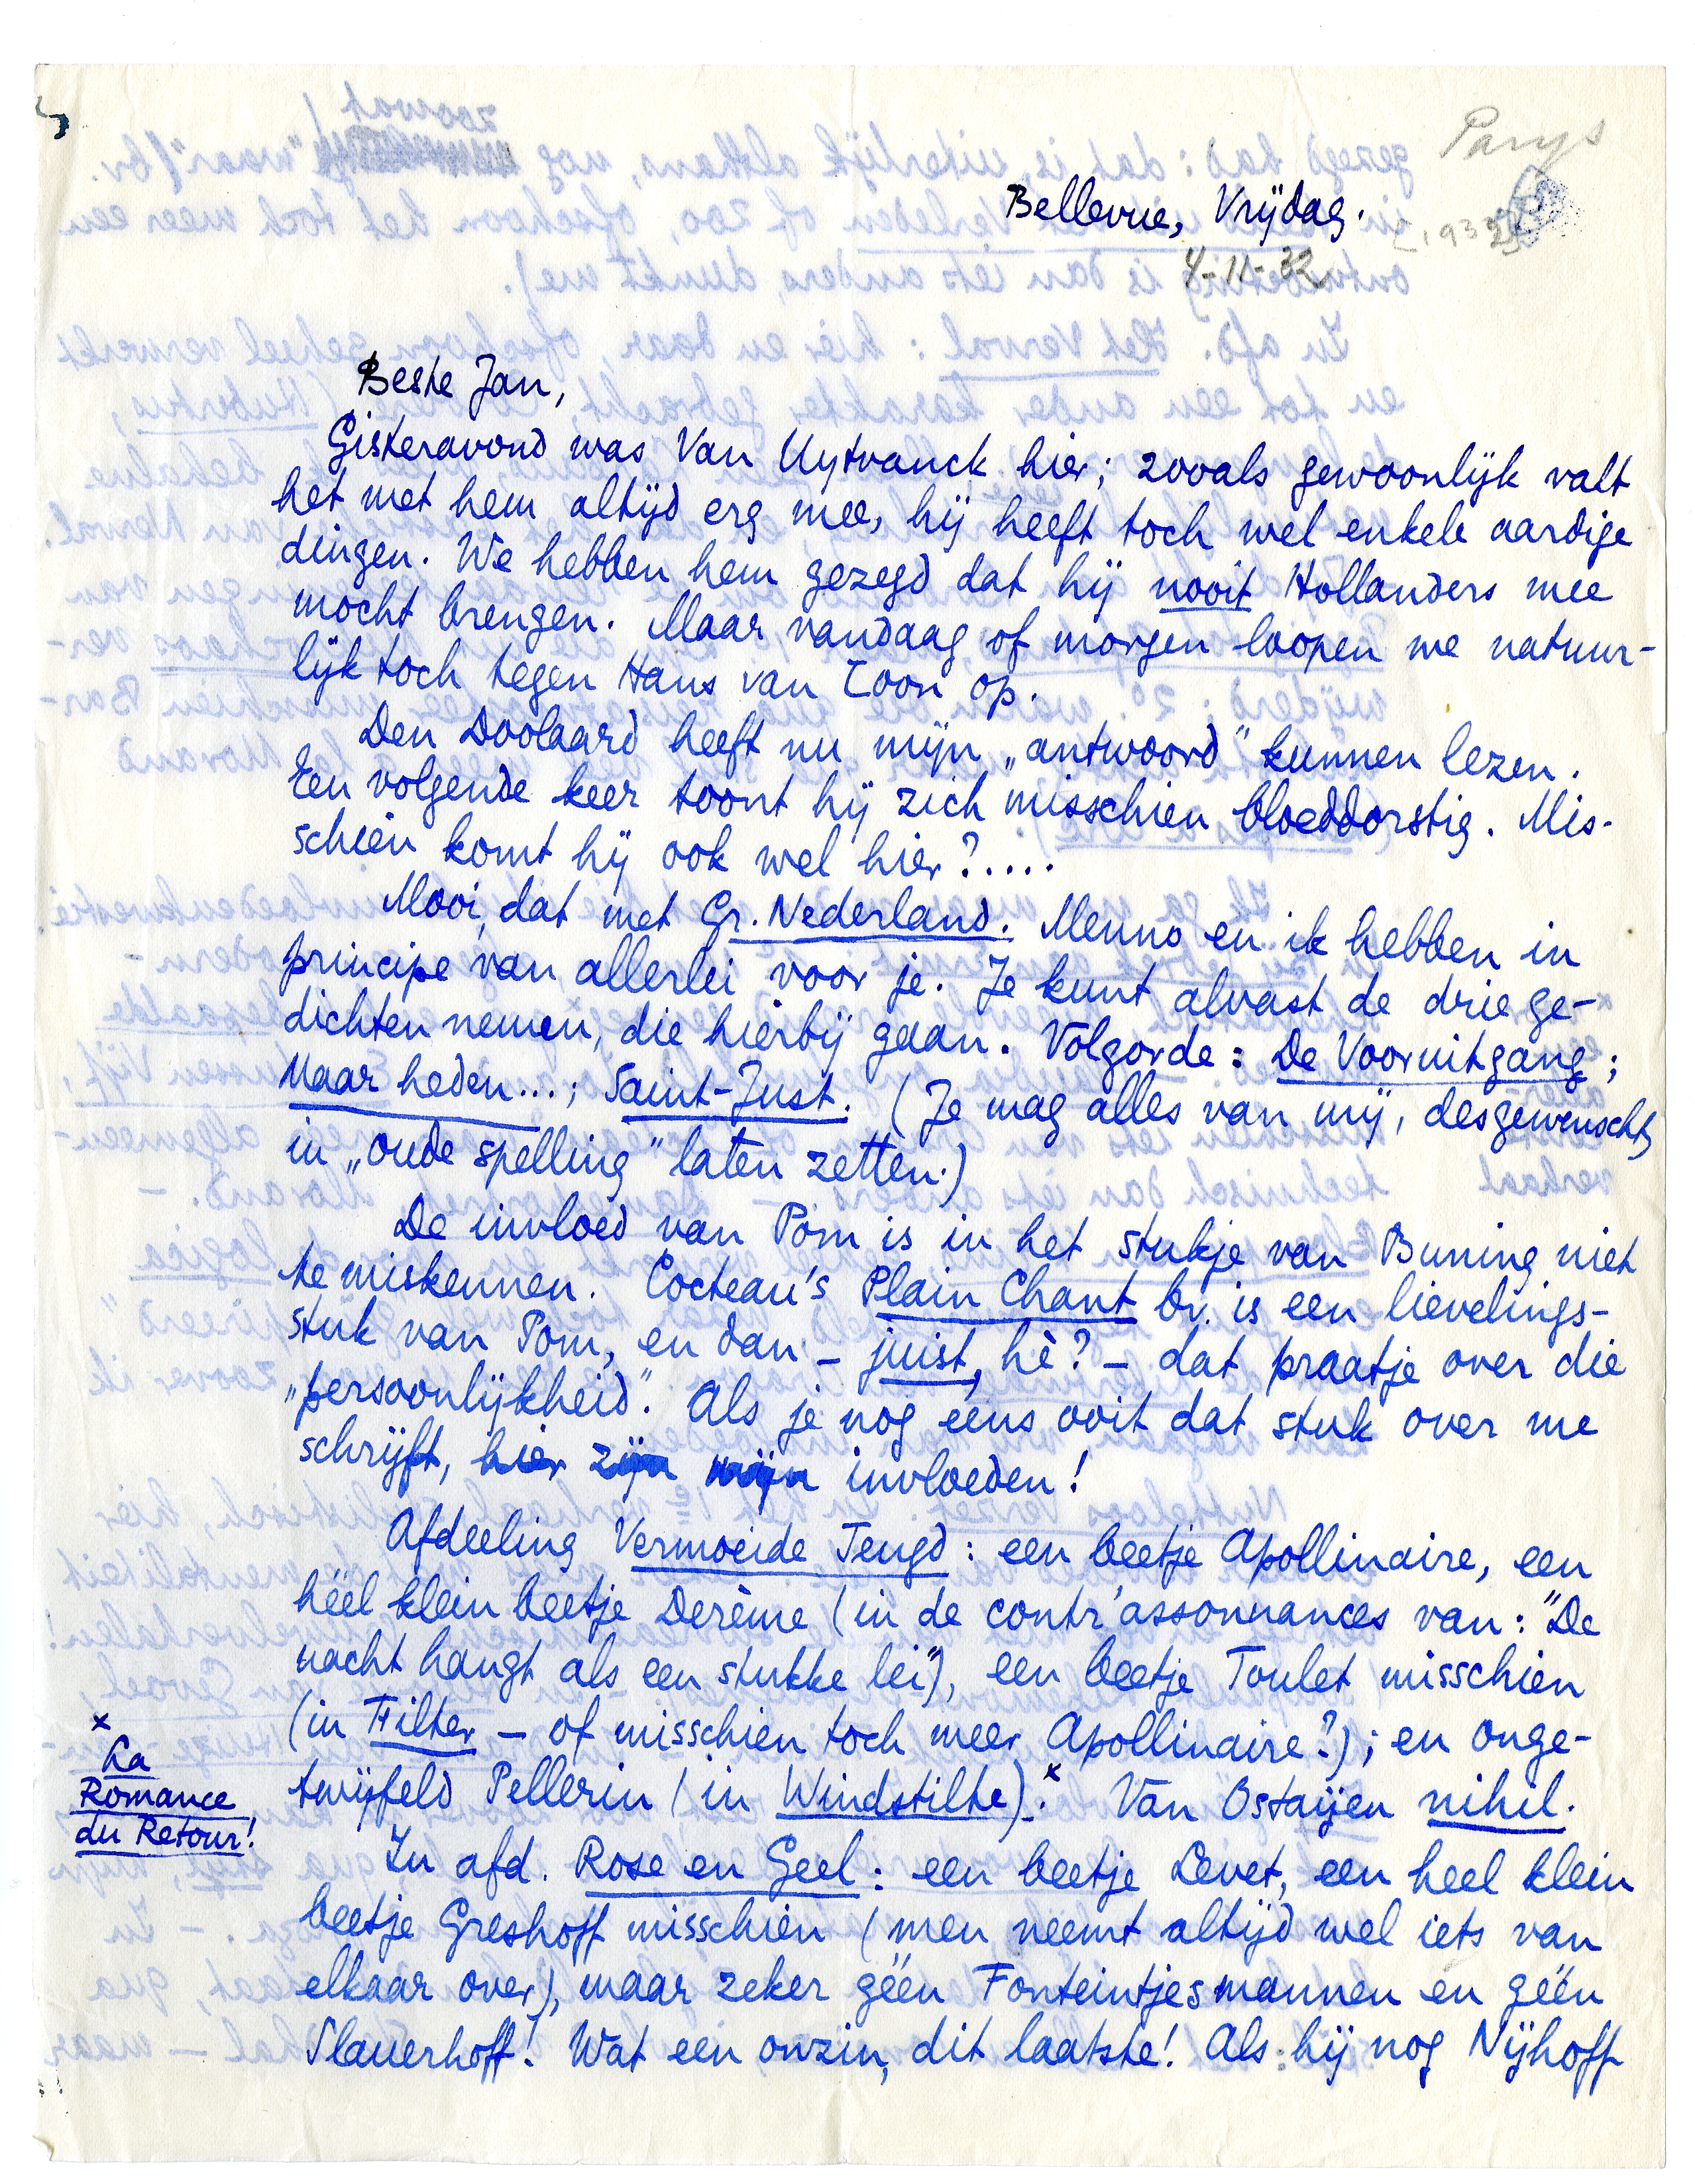 Parijs
Bellevue, Vrijdag.
4-11-32
Beste Jan,
Gisteravond was Van Uytvanck hier; zooals gewoonlijk valt
het met hem altijd erg mee, hij heeft toch wel enkele aardige
dingen. We hebben hem gezegd dat hij nooit Hollanders mee
mocht brengen. Maar vandaag of morgen loopen we natuur-
lijk toch tegen Hans van Loon op.
Den Doolaard heeft nu mijn „antwoord" kunnen lezen.
Een volgende keer toont hij zich misschien bloeddorstig. Mis-
schien komt hij ook wel hier?.....
Mooi, dat met Gr. Nederland. Menno en ik hebben in
principe van allerlei voor je. Je kunt alvast de drie ge-
dichten nemen, die hierbij gaan. Volgorde: De Vooruitgang;
Maar heden...; Saint-Just. (Je mag alles van mij, desgewenscht,
in „oude spelling" laten zetten.)
De invloed van Pom is in het stukje van Buning niet
te miskennen. Cocteau's Plain Chant bv. is een lievelings-
stuk van Pom, en dan – juist, hè? – dat praatje over die
„persoonlijkheid". Als je nog eens ooit dat stuk over me
schrijft, hier zijn mijn invloeden!
Afdeeling Vermoeide Jeugd: een beetje Apollinaire, een
héél klein beetje Derème (in de contr'assonnances van: "De
nacht hangt als een stukke lei"), een beetje Toulet misschien
(in Filter – of misschien toch meer Apollinaire?); en onge-
twijfeld Pellerin (in Windstilte).x Van Ostaijen nihil.
x
La
Romance
du Retour!
In afd. Rose en Geel: een beetje Levet, een heel klein
beetje Greshoff misschien (men neemt altijd wel iets van
elkaar over), maar zeker géén Fonteintjesmannen en géén
Slauerhoff! Wat een onzin, dit laatste! Als hij nog Nijhoff